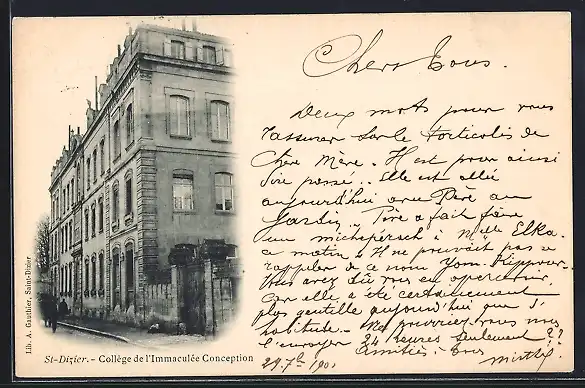 Chers Tous.
Deux mots pour vous
rassurer sur le torticolis de
Chère Mère. Il est pour ainsi
dire passé.. Elle est allée
aujourd'hui avec Père au
Jardin, Père a fait faire
un à Melle Elka.
ce matin. Il ne pouvait pas se
rappeler de ce nom Yom-Kippour.
Vous avez dû vous en apercevoir.
Car elle a été certainement
plus gentille aujourd'hui que d'
habitude. Ne pourriez-vous nous
l'envoyer 24 heures seulement??
Amitiés à tous
29. 7bre 1901
Lib. A. Gauthier, Saint-Dizier
St-Dizier. - Collège de l'Immaculée Conception